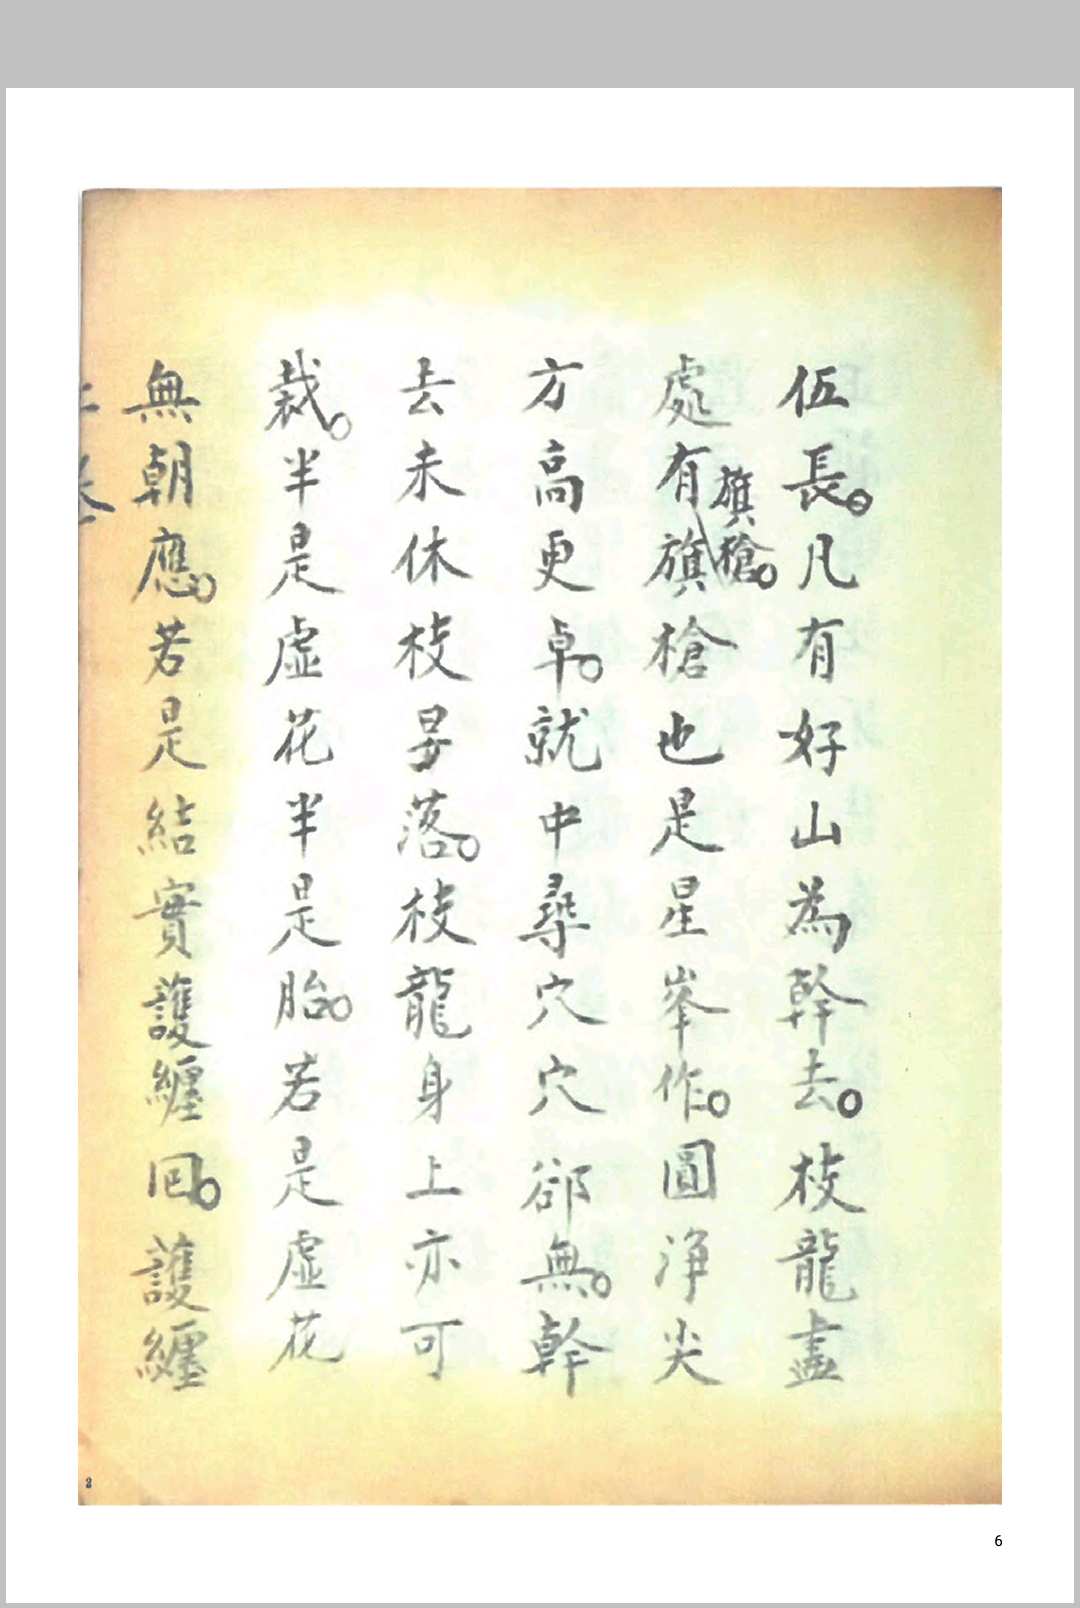 伍長。凡有好山為幹去。枝龍盡
處有旗槍旗槍。也是星峯作。圓淨尖
方高更卓。就中尋穴穴郤無。幹
去未休枝早落。枝龍身上亦可
裁。半是虛花半是胎。若是虛花
無朝應。若是結實護纏回。護纏
2
6